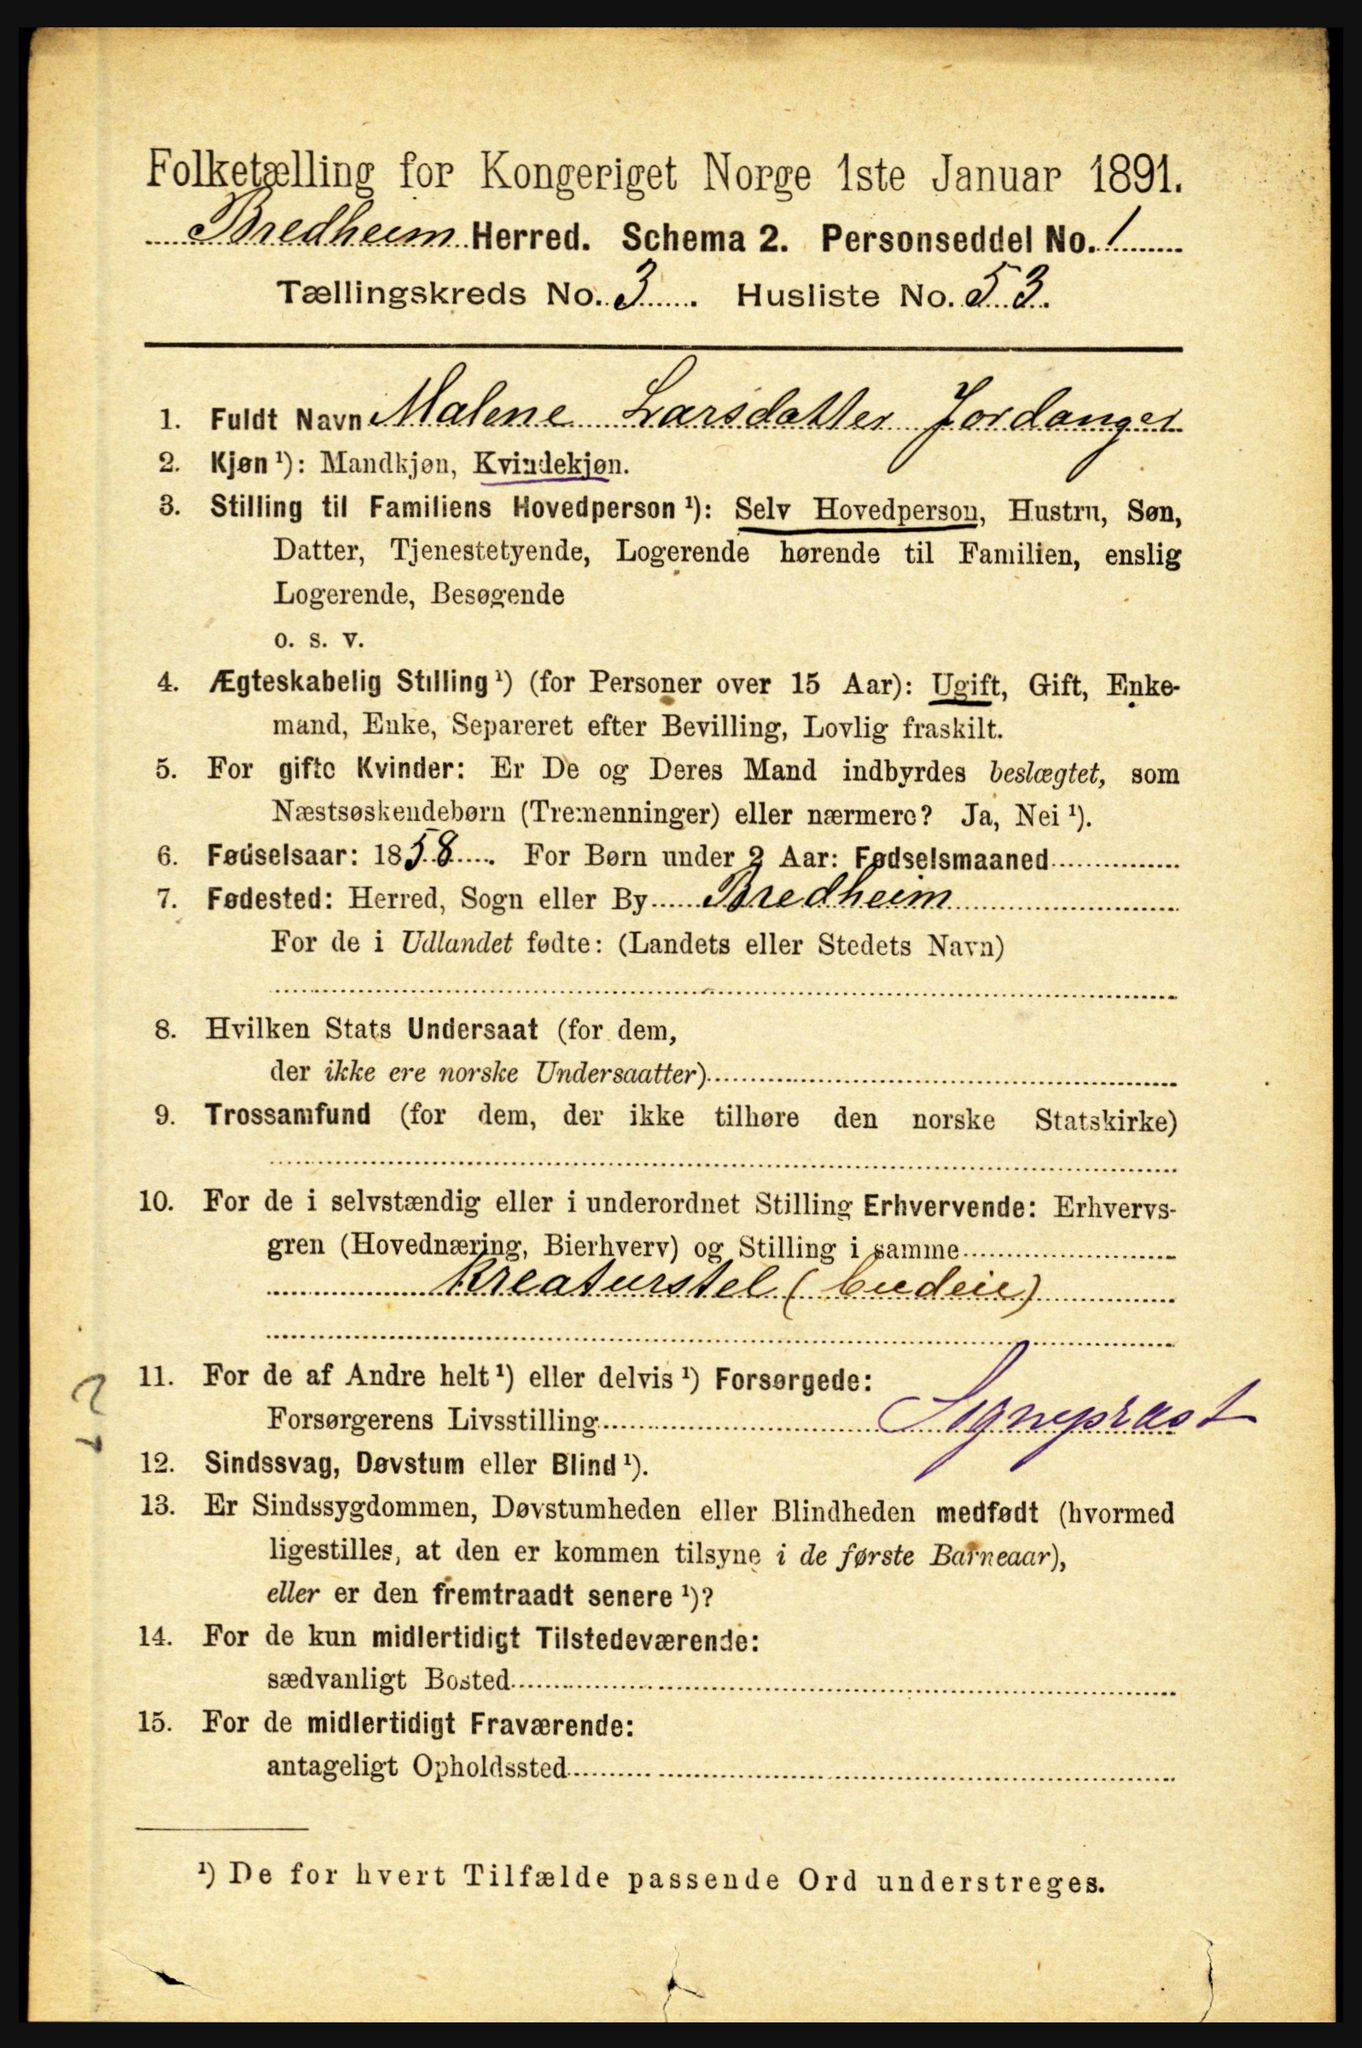 Folketælling for Kongeriget Norge 1ste Januar 1891.
Bredheim Herred. Schema 2. Personseddel No. 1
Tællingskreds No. 3. Husliste No. 53.
1. Fuldt Navn Malene Larsdatter Jordanger
2. Kjøn ¹): Mandkjøn, Kvindekjøn.
3. Stilling til Familiens Hovedperson ¹): Selv Hovedperson, Hustru, Søn,
Datter, Tjenestetyende, Logerende hørende til Familien, enslig
Logerende, Besøgende
o. s. v.
4. Ægteskabelig Stilling ¹) (for Personer over 15 Aar): Ugift, Gift, Enke-
mand, Enke, Separeret efter Bevilling, Lovlig fraskilt.
5. For gifte Kvinder: Er De og Deres Mand indbyrdes beslægtet, som
Næstsøskendebørn (Tremenninger) eller nærmere? Ja, Nei ¹).
6. Fødselsaar: 1858. For Børn under 2 Aar: Fødselsmaaned
7. Fødested: Herred, Sogn eller By Bredheim
For de i Udlandet fødte: (Landets eller Stedets Navn)
8. Hvilken Stats Undersaat (for dem,
der ikke ere norske Undersaatter)
9. Trossamfund (for dem, der ikke tilhøre den norske Statskirke)
10. For de i selvstændig eller i underordnet Stilling Erhvervende: Erhvervs-
gren (Hovednæring, Bierhverv) og Stilling i samme
Kreaturstel (budeie)
11. For de af Andre helt ¹) eller delvis ¹) Forsørgede:
Forsørgerens Livsstilling Sogneprest
12. Sindssvag, Døvstum eller Blind ¹).
13. Er Sindssygdommen, Døvstumheden eller Blindheden medfødt (hvormed
ligestilles, at den er kommen tilsyne i de første Barneaar),
eller er den fremtraadt senere ¹)?
14. For de kun midlertidigt Tilstedeværende:
sædvanligt Bosted
15. For de midlertidigt Fraværende:
antageligt Opholdssted
¹) De for hvert Tilfælde passende Ord understreges.